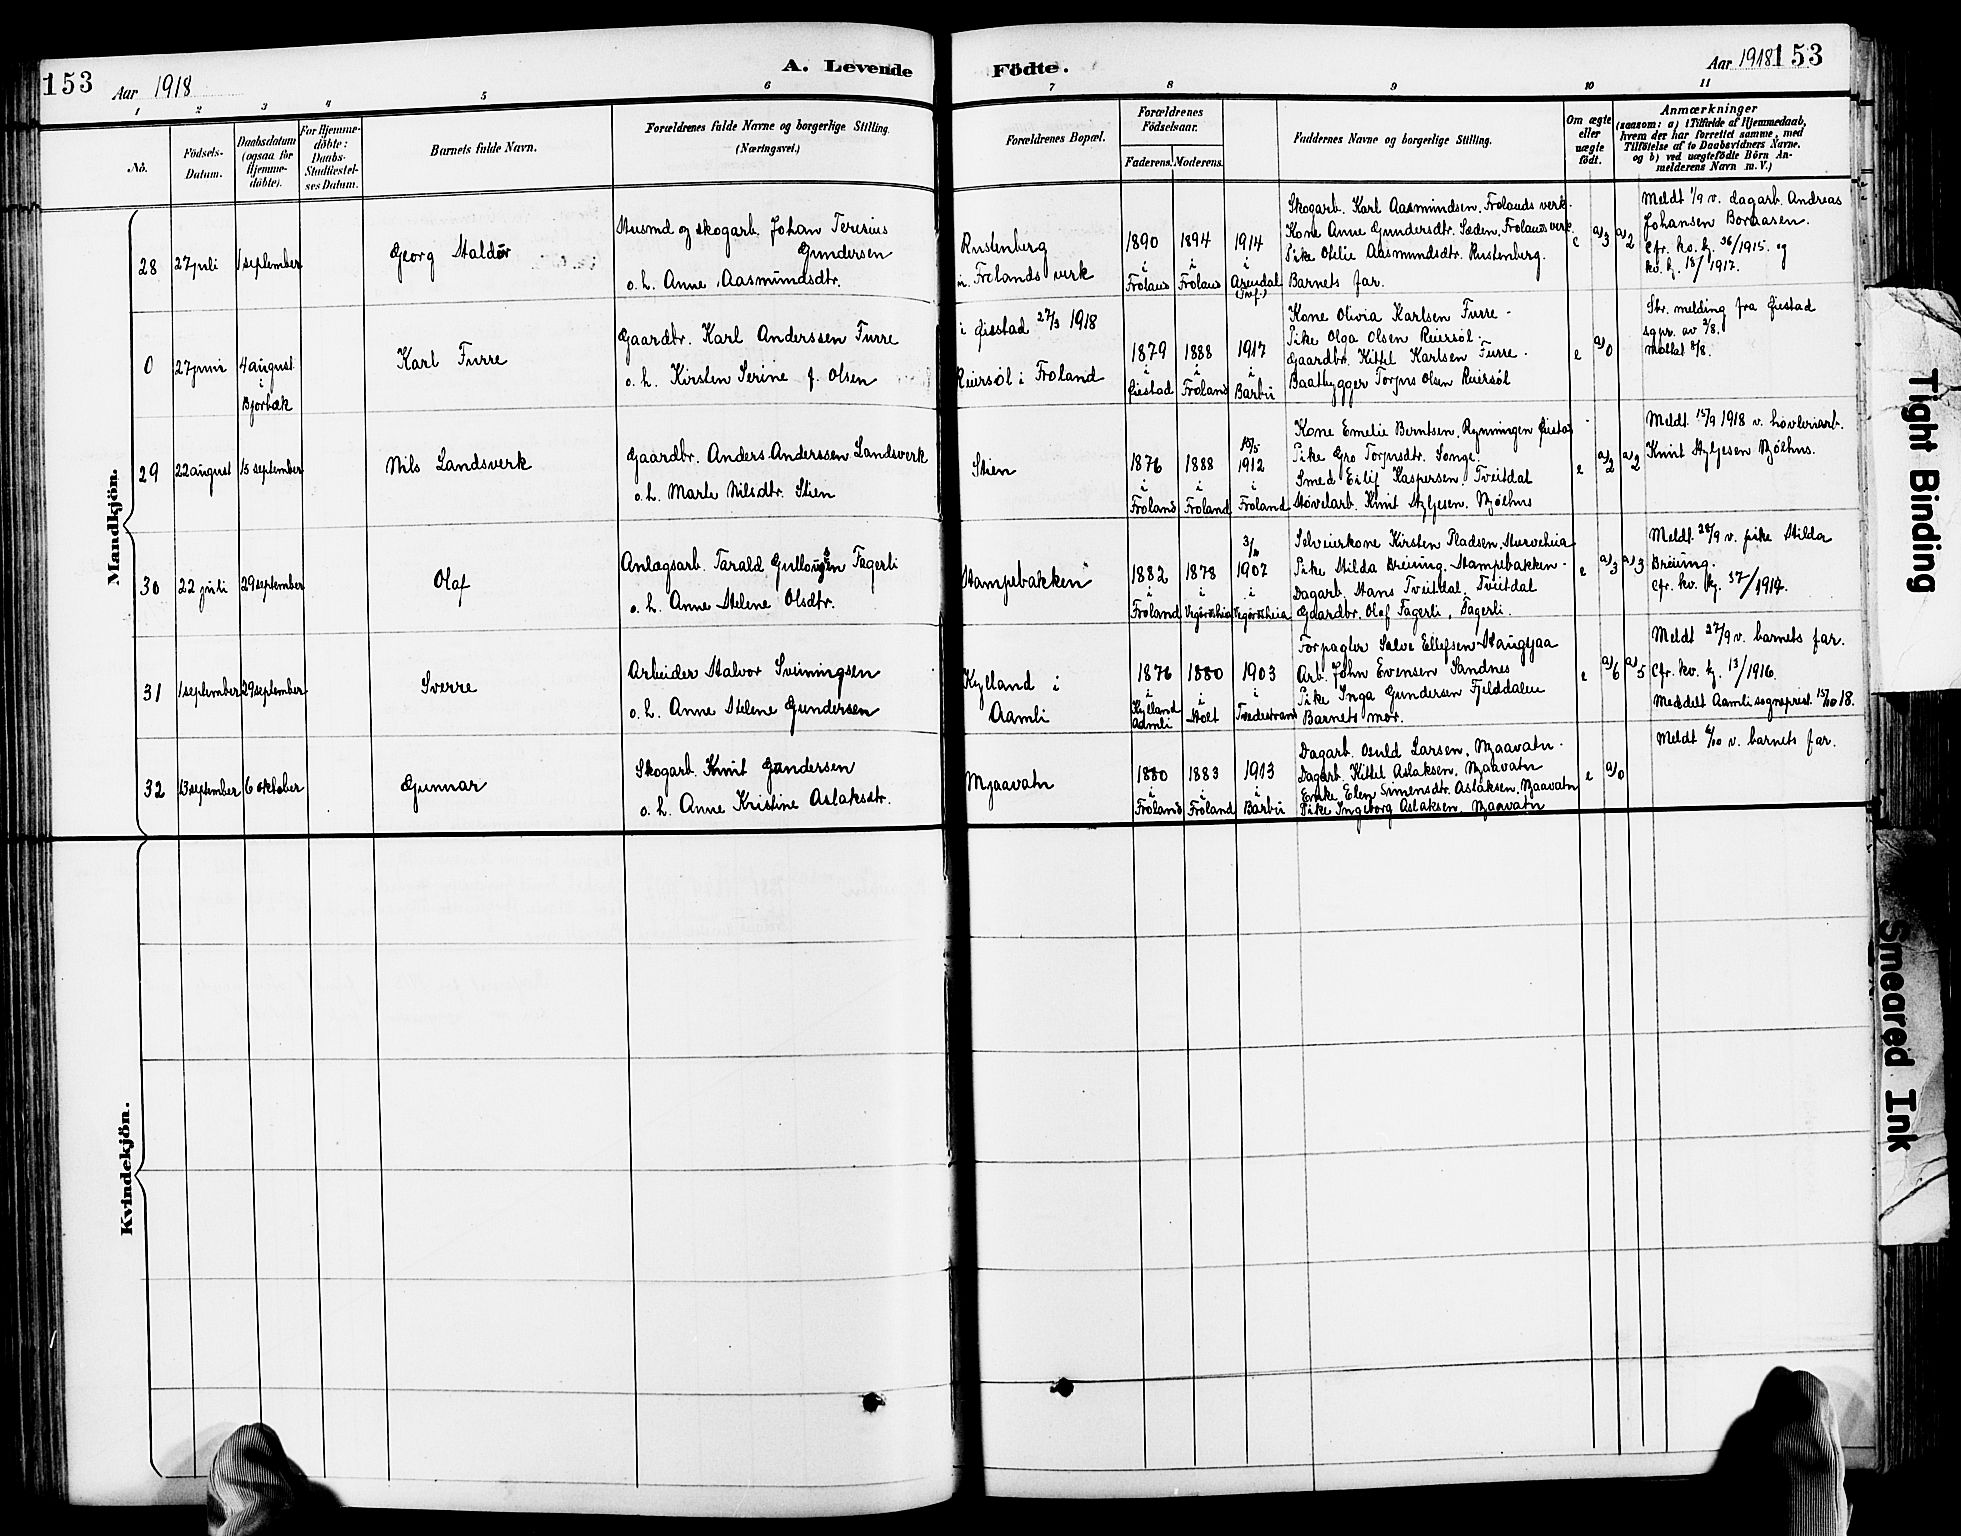 153
Aar 1918
A. Levende
Födte.
Aar 1918
153
1
2
3
4
5
6
7
8
9
10
11
No.
Födsels-
Datum.
Daabsdatum
(ogsaa for
Hjemme-
döbte).
For Hjemme-
döbte:
Daabs-
Stadfæstel-
ses Datum.
Barnets fulde Navn.
Forældrenes fulde Navne og borgerlige Stilling.
(Næringsvei.)
Forældrenes Bopæl.
Forældrenes
Födselsaar.
Faderens.
Moderens.
Faddernes Navne og borgerlige Stilling.
Om ægte
eller
uægte
födt.
Anmærkninger
(saasom: a) i Tilfælde af Hjemmedaab,
hvem der har forrettet samme, med
Tilföielse af to Daabsvidners Navne.
og b) ved uægtefödte Börn An-
melderens Navn m. V.)
Mandkjön.
28
27 juli
1 september
Georg Haldor
Husmd og skogarb. Johan Teresius
Gundersen
o. h. Anne Aasmundsdtr.
Rustenberg
Frolands verk
1890
i
Froland
1894
i
Froland
1914
i
Arendal
Skogarb. Karl Aasmundsen, Frolands verk.
Kone Anne Gundersdtr. Løden, Frolands verk
Pike Otelie Aasmundsdtr. Rustenberg.
Barnets far.
e
a/3
a/2
Meldt 1/9 v. dagarb. Andreas
Johansen Boraasen.
Cfr. kv. kj. 36/1915. og
kv. kj. 18/1917.
0
27 juni
4 august
i
Bjorbæk
Karl Furre
Gaardbr. Karl Anderssen Furre
o. h. Kirsten Serine f. Olsen
i Øiestad 27/3 1918
Reiersöl i Froland
1879
i
Øiestad
1888
i
Froland
1917
i
Barbu
Kone Olivia Karlsen Furre.
Pike Olga Olsen Reiersöl.
Gaardbr. Kittel Karlsen Furre.
Baatbygger Torjus Olsen Reiersöl
e
a/0
Skr. melding fra Øiestad
sgpr. av 2/8.
Mottat 8/8.
29
22 august
15 september
Nils Landsverk
Gaardbr. Anders Anderssen Landsverk
o. h. Marte Nilsdtr. Stien
Stien
1876
i
Froland
1888
i
Froland
1912
i
Froland
Kone Emelie Berntsen, Rynningen Øiestad
Pike Gro Torjusdtr. Songe.
Smed Eilif Kaspersen, Tveitdal
Høvelarb. Knut Hyljesen, Mjölhus
e
a/2
a/2
Meldt 15/9 1918 v. høvleriarb.
Knut Hyljesen Mjölhus.
30
22 juli
29 september
Olaf
Anlægsarb. Tarald Gullougsen Fagerli
o. h. Anne Helene Olsdtr.
Stampebakken
1882
i
Froland
1878
i
Vegårdsheia
1907
i
Vegårdsheia
Selveierkone Kirsten Pladsen, Hurveheia
Pike Hilda Breiung. Stampebakken.
Dagarb. Hans Tveitdal. Tveitdal
Gaardbr. Olaf Fagerli, Fagerli.
e
a/3
a/3
Meldt 28/9 v. pike Hilda
Breiung.
Cfr. kv. kj. 37/1914.
31
1 september
29 september
Sverre
Arbeider Halvor Sveinungsen
o. h. Anne Helene Gundersen
Kylland i
Aamli
1876
i
Kylland
Aamli
1880
i
Holt
1903
i
Tvedestrand
Forpagter Salve Ellefsen Haugsjaa
Arb. John Evensen Sandnes
Pike Inga Gundersen Fjelddalen
Barnets mor.
e
a/6
a/5
Meldt 27/9 v. barnets far.
Cfr. kv. kj. 13/1916.
Meddelt Aamli sogneprest 15/10 18.
32
13 september
6 oktober
Gunnar
Skogarb. Knut Gundersen
o. h. Anne Kristine Aslaksdtr.
Mjaavatn
1880
i
Froland
1883
i
Froland
1913
i
Barbu
Dagarb. Osuld Larsen, Mjaavatn.
Dagarb. Kittel Aslaksen, Mjaavatn
Enke Elen Simensdtr. Aslaksen, Mjaavatn
Pike Ingeborg Aslaksen, Mjaavatn
e
a/0
Meldt 6/10 v. barnets far.
Kvindekjön.
Tight Binding
Smeared Ink